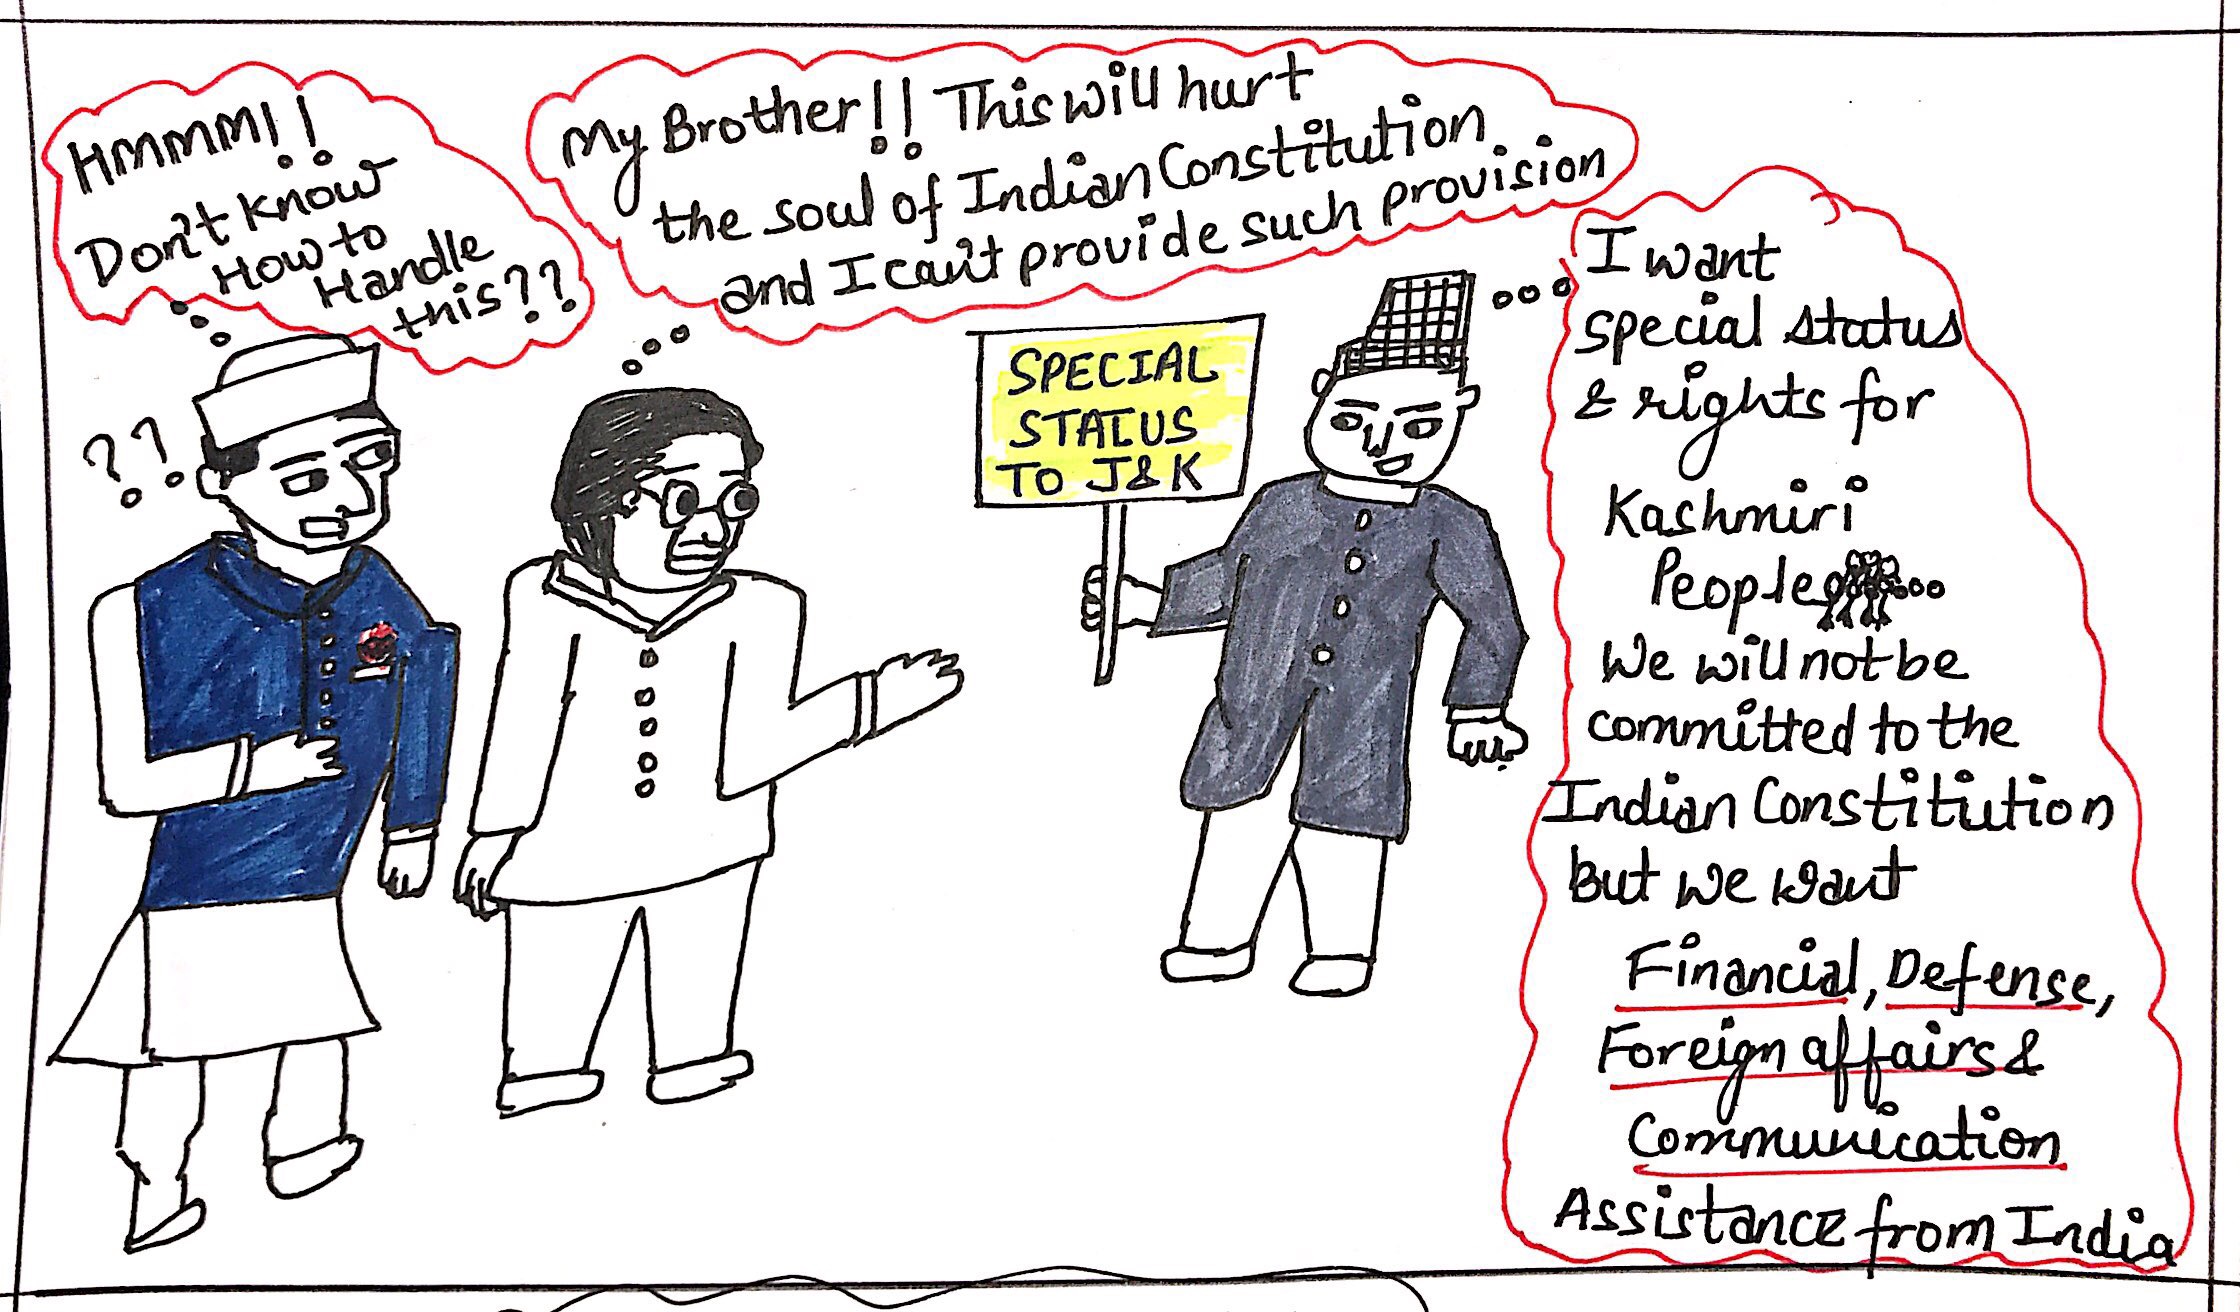 HMMMM!!
Don't know
How to
Handle
this??
??
My Brother!! This will hurt
the soul of Indian Constitution
and I can't provide such provision
SPECIAL
STATUS
TO J&K
I want
special status
& rights for
Kashmiri
People...
We will not be
committed to the
Indian Constitution
But we want
Financial, Defense,
Foreign affairs &
Communication
Assistance from India